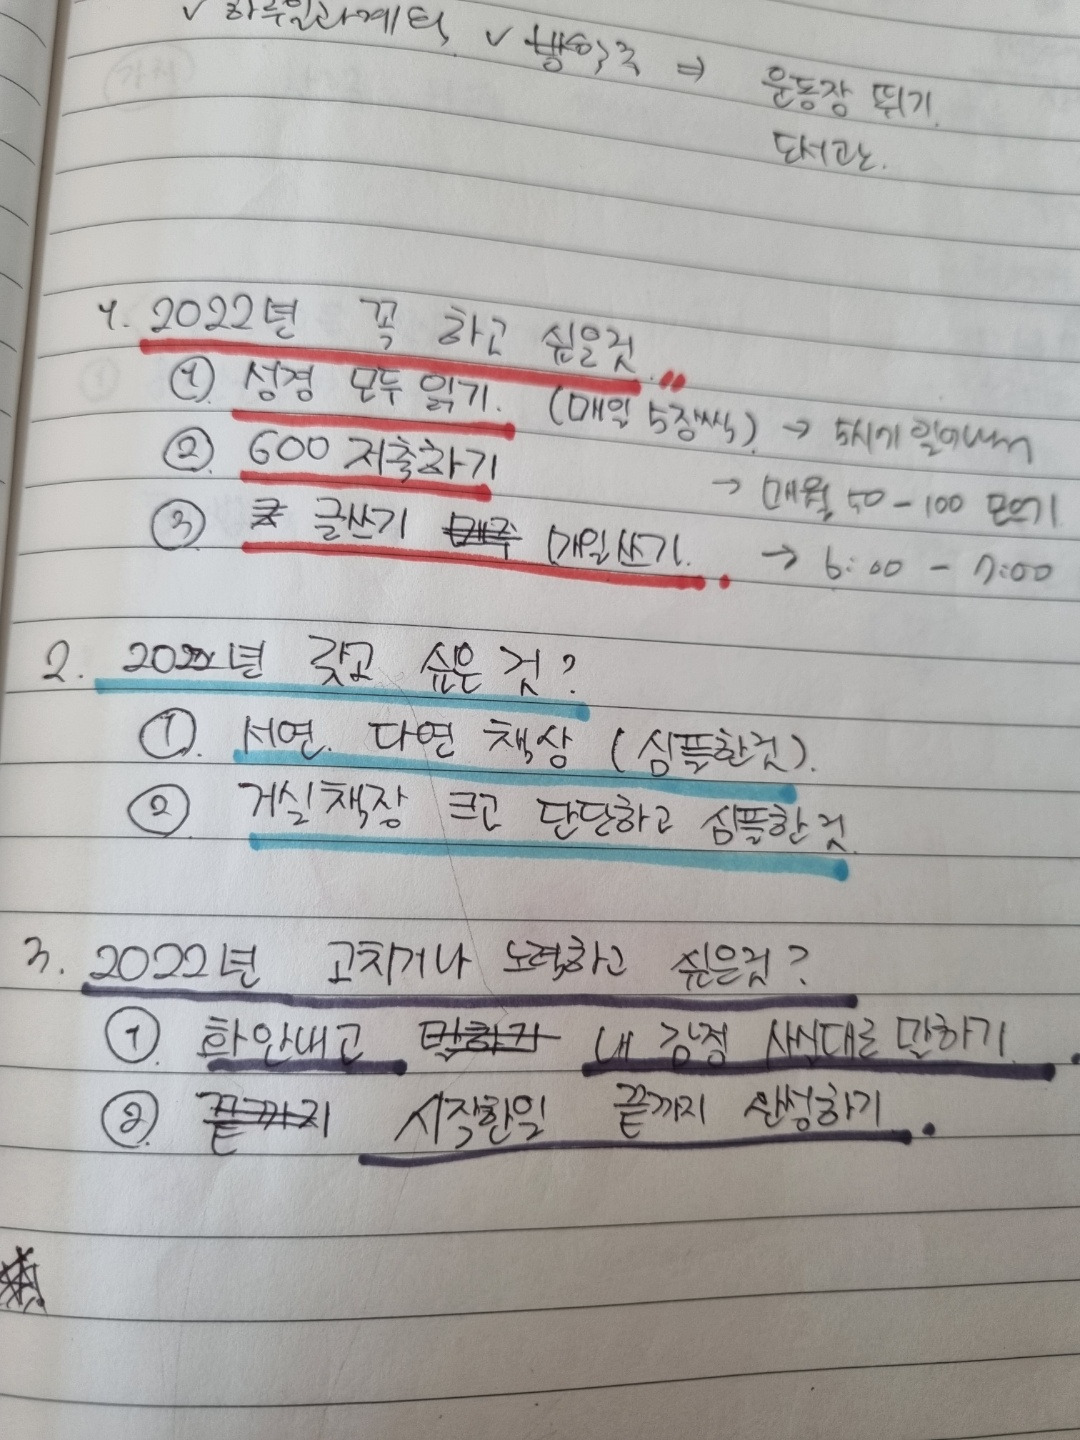 ✓ 하루일과계획, ✓ ⇒ 운동장 뛰기.
도서관.
1. 2022년 꼭 하고 싶은것.
① 성경 모두 읽기. (매일 5장씩) → 5시기 일어나서
② 600 저축하기 → 매월 50-100 모으기
③ 글쓰기 매주 매일쓰기. → 6:00 - 7:00
2. 2022년 갖고 싶은 것?
①. 서연. 다연 책상 (심플한것).
② 거실책장 크고 단단하고 심플한것.
3. 2022년 고치거나 노력하고 싶은것?
① 화안내고 말하기 내 감정 사실대로 말하기.
② 끝까지 시작한일 끝까지 완성하기.